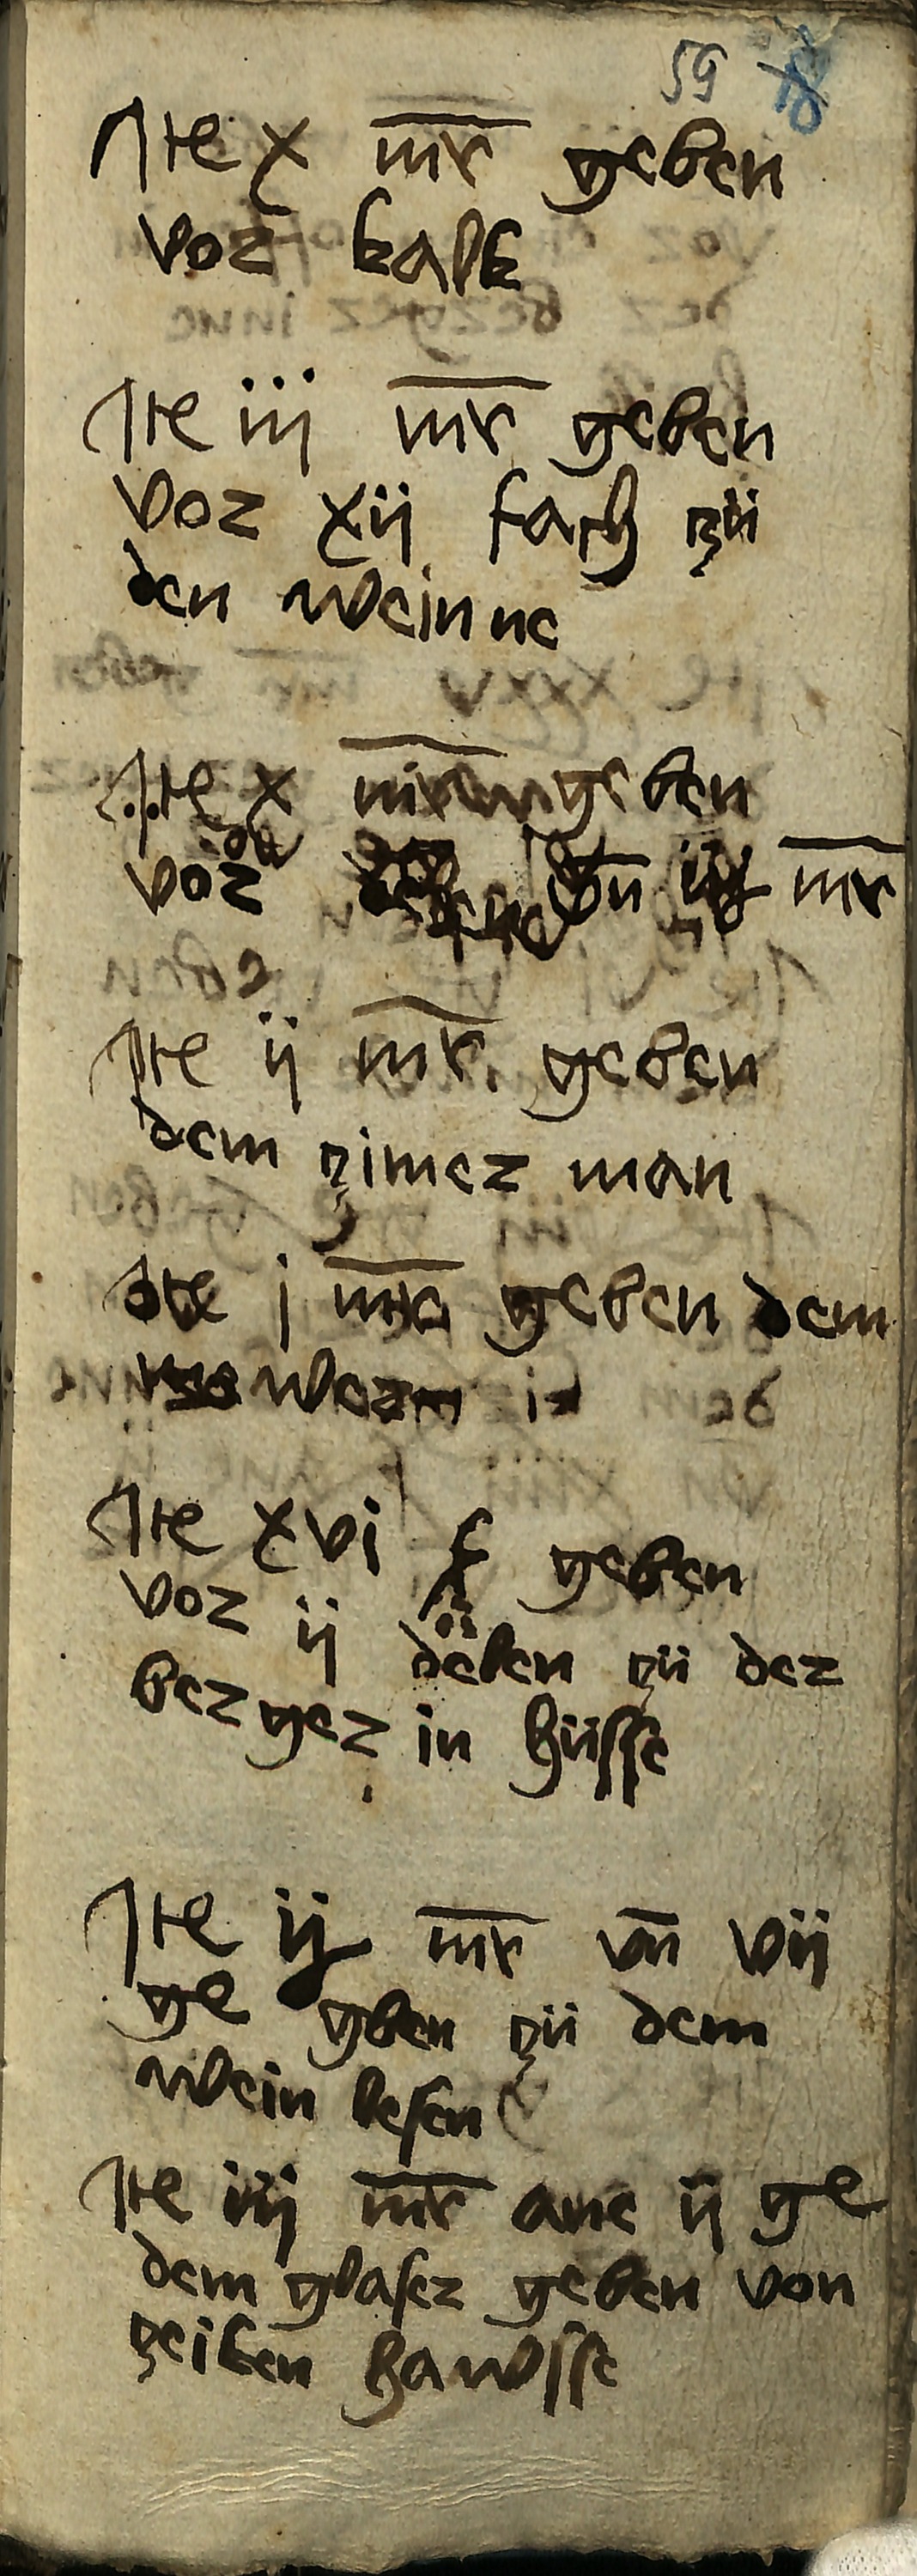 59
Ite x mr geben
vor kalk
Ite iij mr geben
vor xij fach zü
den weinne
Ite x mr geben
vor vn iij mr
Ite ij mr geben
dem zimer man
Ite j mr geben dem
Ite xvi geben
vor ij delen zü der
berger in hüsse
Ite ij mr vn vij
ge gben zü dem
wein lesen
Ite iij mr ane ij ge
dem glaser geben von
hawsse